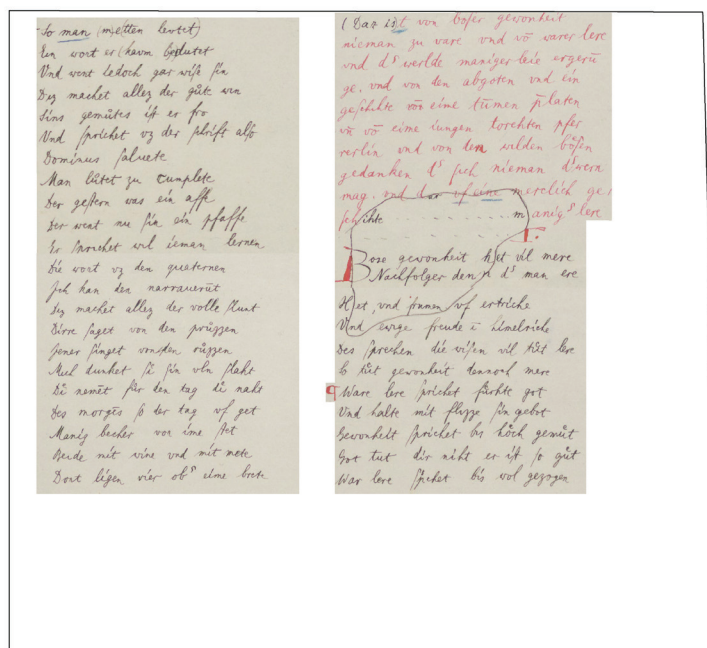 So man (m)etten levtet)
Ein wort er kavm bedutet
Vnd went iedoch gar wiſe ſin
Diz machet allez der gůte win
Sins gemůtes iſt er fro
Vnd ſprichet vz der ſchrift alſo
Dominus ſaluete
Man lůtet zu cumplete
Der geſtern was ein affe
Der went nu ſin ein pfaffe
Er ſprichet wil ieman lernen
Die wort vz den quaternen
Jch kan den narrauerůt
Diz machet allez der volle ſlunt
Dirre ſaget von den průzzen
Jener ſinget von den růzzen
Mich dunket ſi ſin vln ſlaht
Di nemēt fůr den tag di naht
Des morgēs ſo der tag vf get
Manig becher von ime ſtet
Beide mit wine vnd mit mete
Dort ligen vier obˢ eime brete
(Daz ist von boſer gewonheit
nieman zu vare vnd vō warer lere
vnd dˢ werlde maniger leie ergerū
ge, vnd von den abgoten vnd ein
geſchihte von eime tumen p̄laten
vn̄ vō eime iungen torehten pfer
rerlin vnd von den wilden bőſen
gedanken dˢ ſich nieman dˢwern
mag, vnd dar vf eine merclich ge
ſchihte . . . . . . . manigˢ lere
Boze gewonheit het vil mere
Nachfolger den n dˢ man ere
Het, vnd ſrumen vf ertriche
Vnd ewige freude ī himelriche
Des ſprechen die wiſen vil tůt lere
So tůt gewonheit dennoch mere
¶ Ware lere ſprichet fůrhte got
Vnd halte mit flizze ſin gebot
Gewonheit ſprichet bis hőch gemůt
Got tut dir niht er iſt ſo gůt
War lere ſp̄chet bis wol gezogen